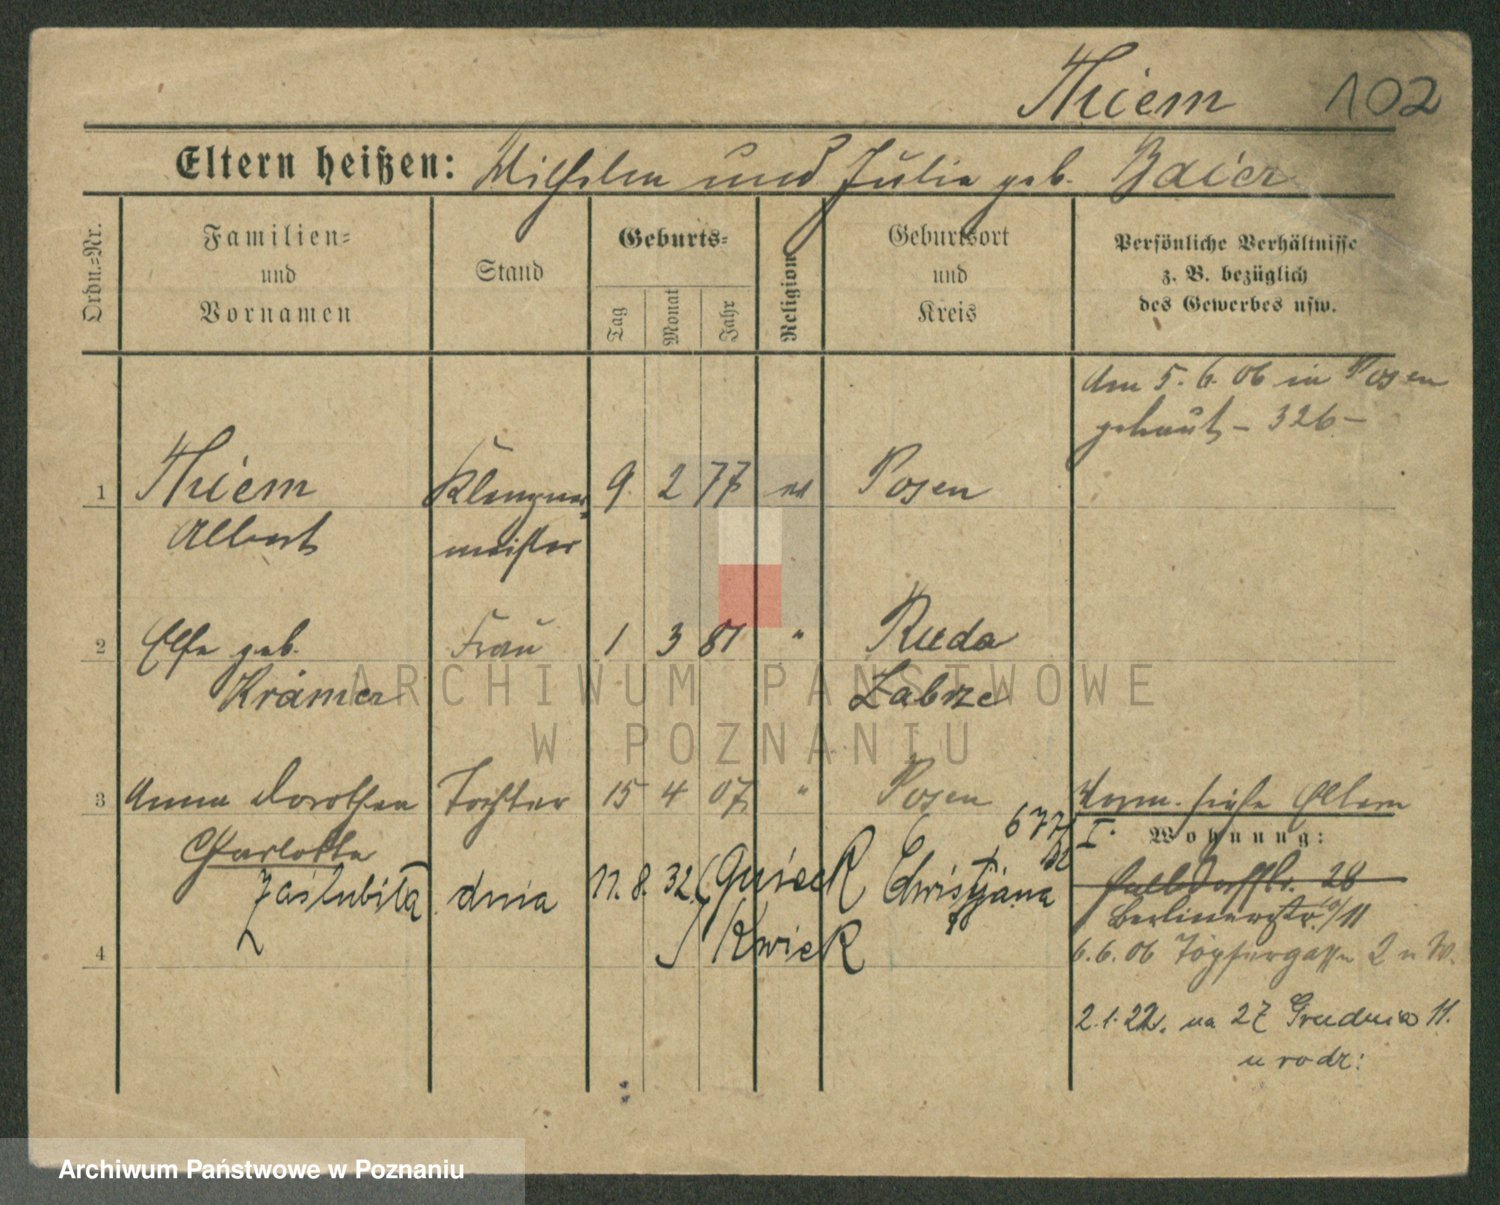 Thiem 102
Eltern heißen: Wilhelm und Julia geb. Baier
Ordn.-Nr.
Familien-
und
Vornamen
Stand
Geburts-
Tag
Monat
Jahr
Religion
Geburtsort
und
Kreis
Persönliche Verhältnisse
z. B. bezüglich
des Gewerbes usw.
am 5. 6. 06 in Posen
getraut - 326 -
1 Thiem Klempner- 9 2 77 ev Posen
Albert meister
2 Else geb. Frau 1 3 81 " Ruda
Krämer Zabrze
3 Anna Dorothea Tochter 15 4 07 " Posen Verm. siehe Eltern
Charlotte
677
I. Wohnung:
Zaślubiła dnia 11. 8. 32 Christjana
Kwiek
28
Berlinerstr. 10/11
4
6. 6. 06 Töpfergasse 2 n W.
2. 1. 22. na 27 Grudnia 11.
u rodz:
ARCHIWUM PAŃSTWOWE
W POZNANIU
Archiwum Państwowe w Poznaniu